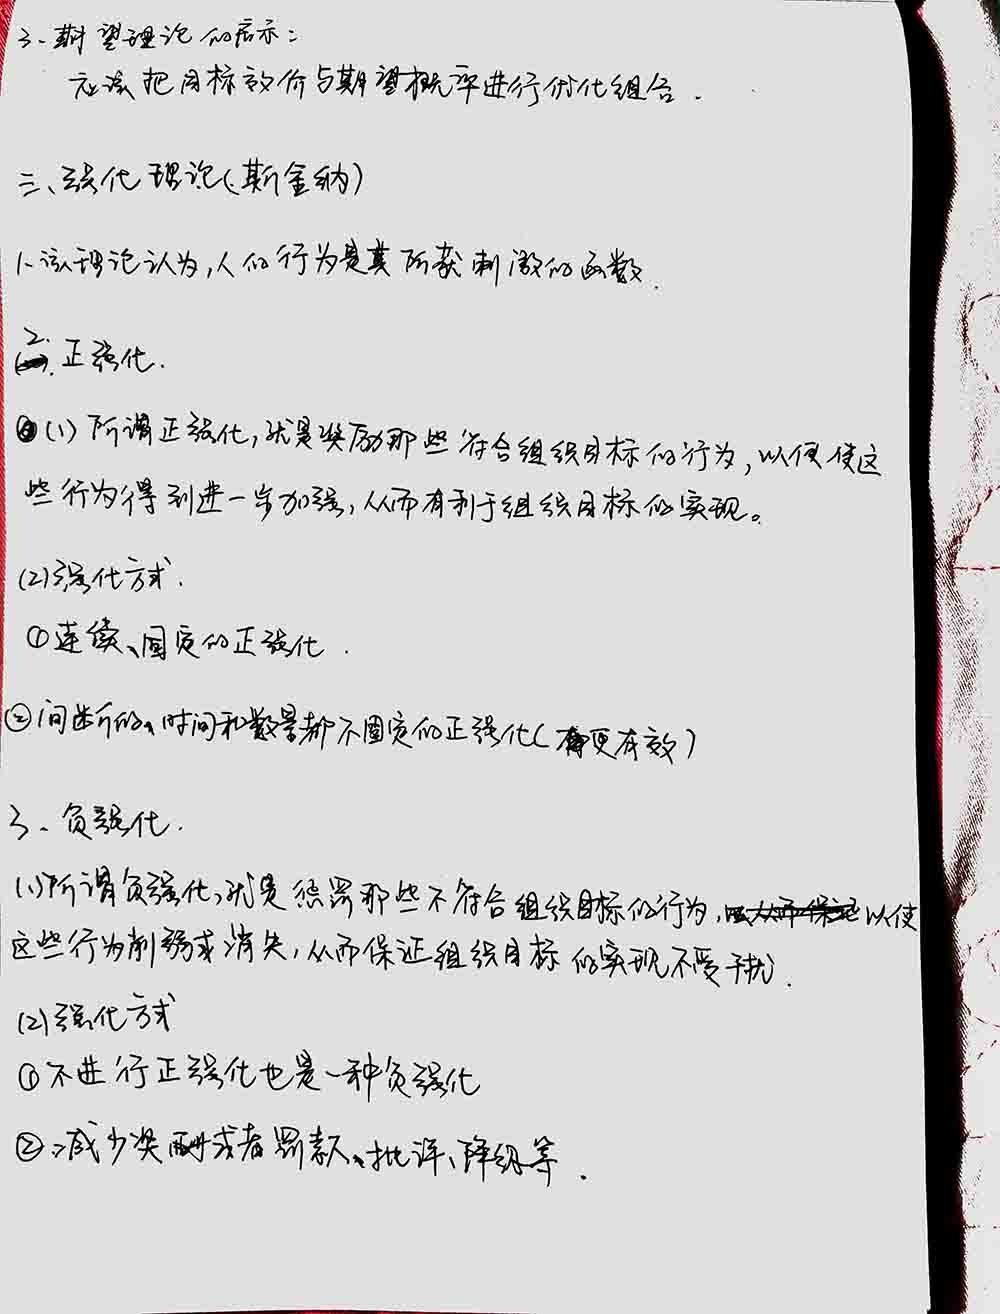 3、期望理论的启示：
应该把目标效价与期望概率进行优化组合.
三、强化理论(斯金纳)
1、该理论认为,人的行为是其所获刺激的函数.
2. 正强化.
(1) 所谓正强化,就是奖励那些符合组织目标的行为,以便使这
些行为得到进一步加强,从而有利于组织目标的实现。
(2)强化方式.
①连续、固定的正强化.
②间断的、时间和数量都不固定的正强化(更有效)
3、负强化.
(1)所谓负强化,就是惩罚那些不符合组织目标的行为,以使
这些行为削弱或消失,从而保证组织目标的实现不受干扰.
(2)强化方式
①不进行正强化也是一种负强化
②减少奖酬或者罚款、批评、降级等.